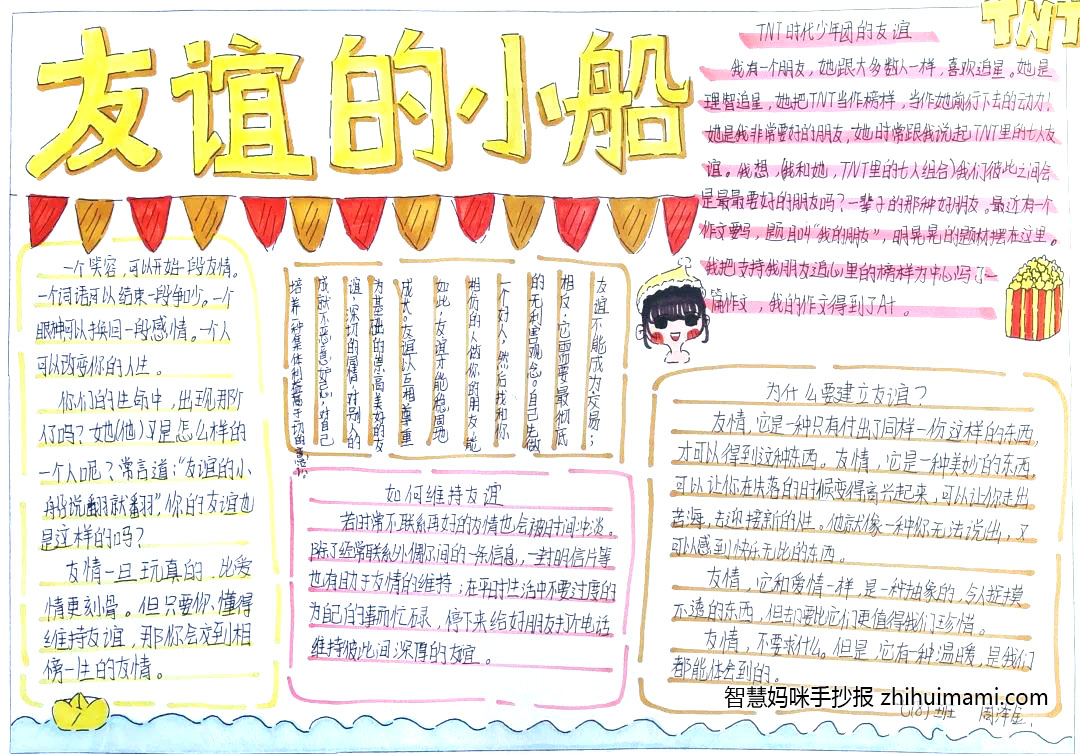 友谊的小船
TNT
TNT时代少年团的友谊
我有一个朋友，她跟大多数人一样，喜欢追星。她是
理智追星，她把TNT当作榜样，当作她前行下去的动力！
她是我非常要好的朋友，她时常跟我说起TNT里的七人友
谊。我想，(我和她，TNT里的七人组合)我们彼此之间会
是最最要好的朋友吗？一辈子的那种好朋友。最近有一个
作文要写，题目叫“我的朋友”，明晃晃的题材摆在这里。
我把支持我朋友追心里的榜样为中心写了一
篇作文，我的作文得到了A+。
一个笑容，可以开始一段友情。
一个词语可以结束一段争吵。一个
眼神可以换回一段感情。一个人
可以改变你的人生。
你们的生命中，出现那个
人了吗？她(他)又是怎么样的
一个人呢？常言道：“友谊的小
船说翻就翻”你的友谊也
是这样的吗？
友情一旦玩真的，比爱
情更刻骨。但只要你懂得
维持友谊，那你会交到相
傍一生的友情。
友谊不能成为交易；
相反，它需要最彻底
的无利害观念。自己先做
一个好人，然后找和你
相仿的人做你的朋友，能
如此，友谊才能稳固地
成长。友谊以互相尊重
为基础的崇高美好的友
谊，深切的同情，对别人的
成就不恶意妒忌，对自己
培养一种集体利益高于一切的意识。
如何维持友谊
若时常不联系再好的友情也会被时间冲淡。
除了经常联系外偶尔间的一条信息，一封明信片等
也有助于友情的维持；在平时生活中不要过度的
为自己的事而忙碌，停下来给好朋友打个电话，
维持彼此间深厚的友谊。
为什么要建立友谊？
友情，它是一种只有付出了同样一份这样的东西，
才可以得到这种东西。友情，它是一种美妙的东西，
可以让你在失落的时候变得高兴起来，可以让你走出
苦海，去迎接新的人生。他就像一种你无法说出，又
可以感到快乐无比的东西。
友情，它和爱情一样，是一种抽象的，令人捉摸
不透的东西，但却要比它们更值得我们珍惜。
友情，不要求什么。但是，它有一种温暖，是我们
都能体会到的。
智慧妈咪手抄报 zhihuimami.com